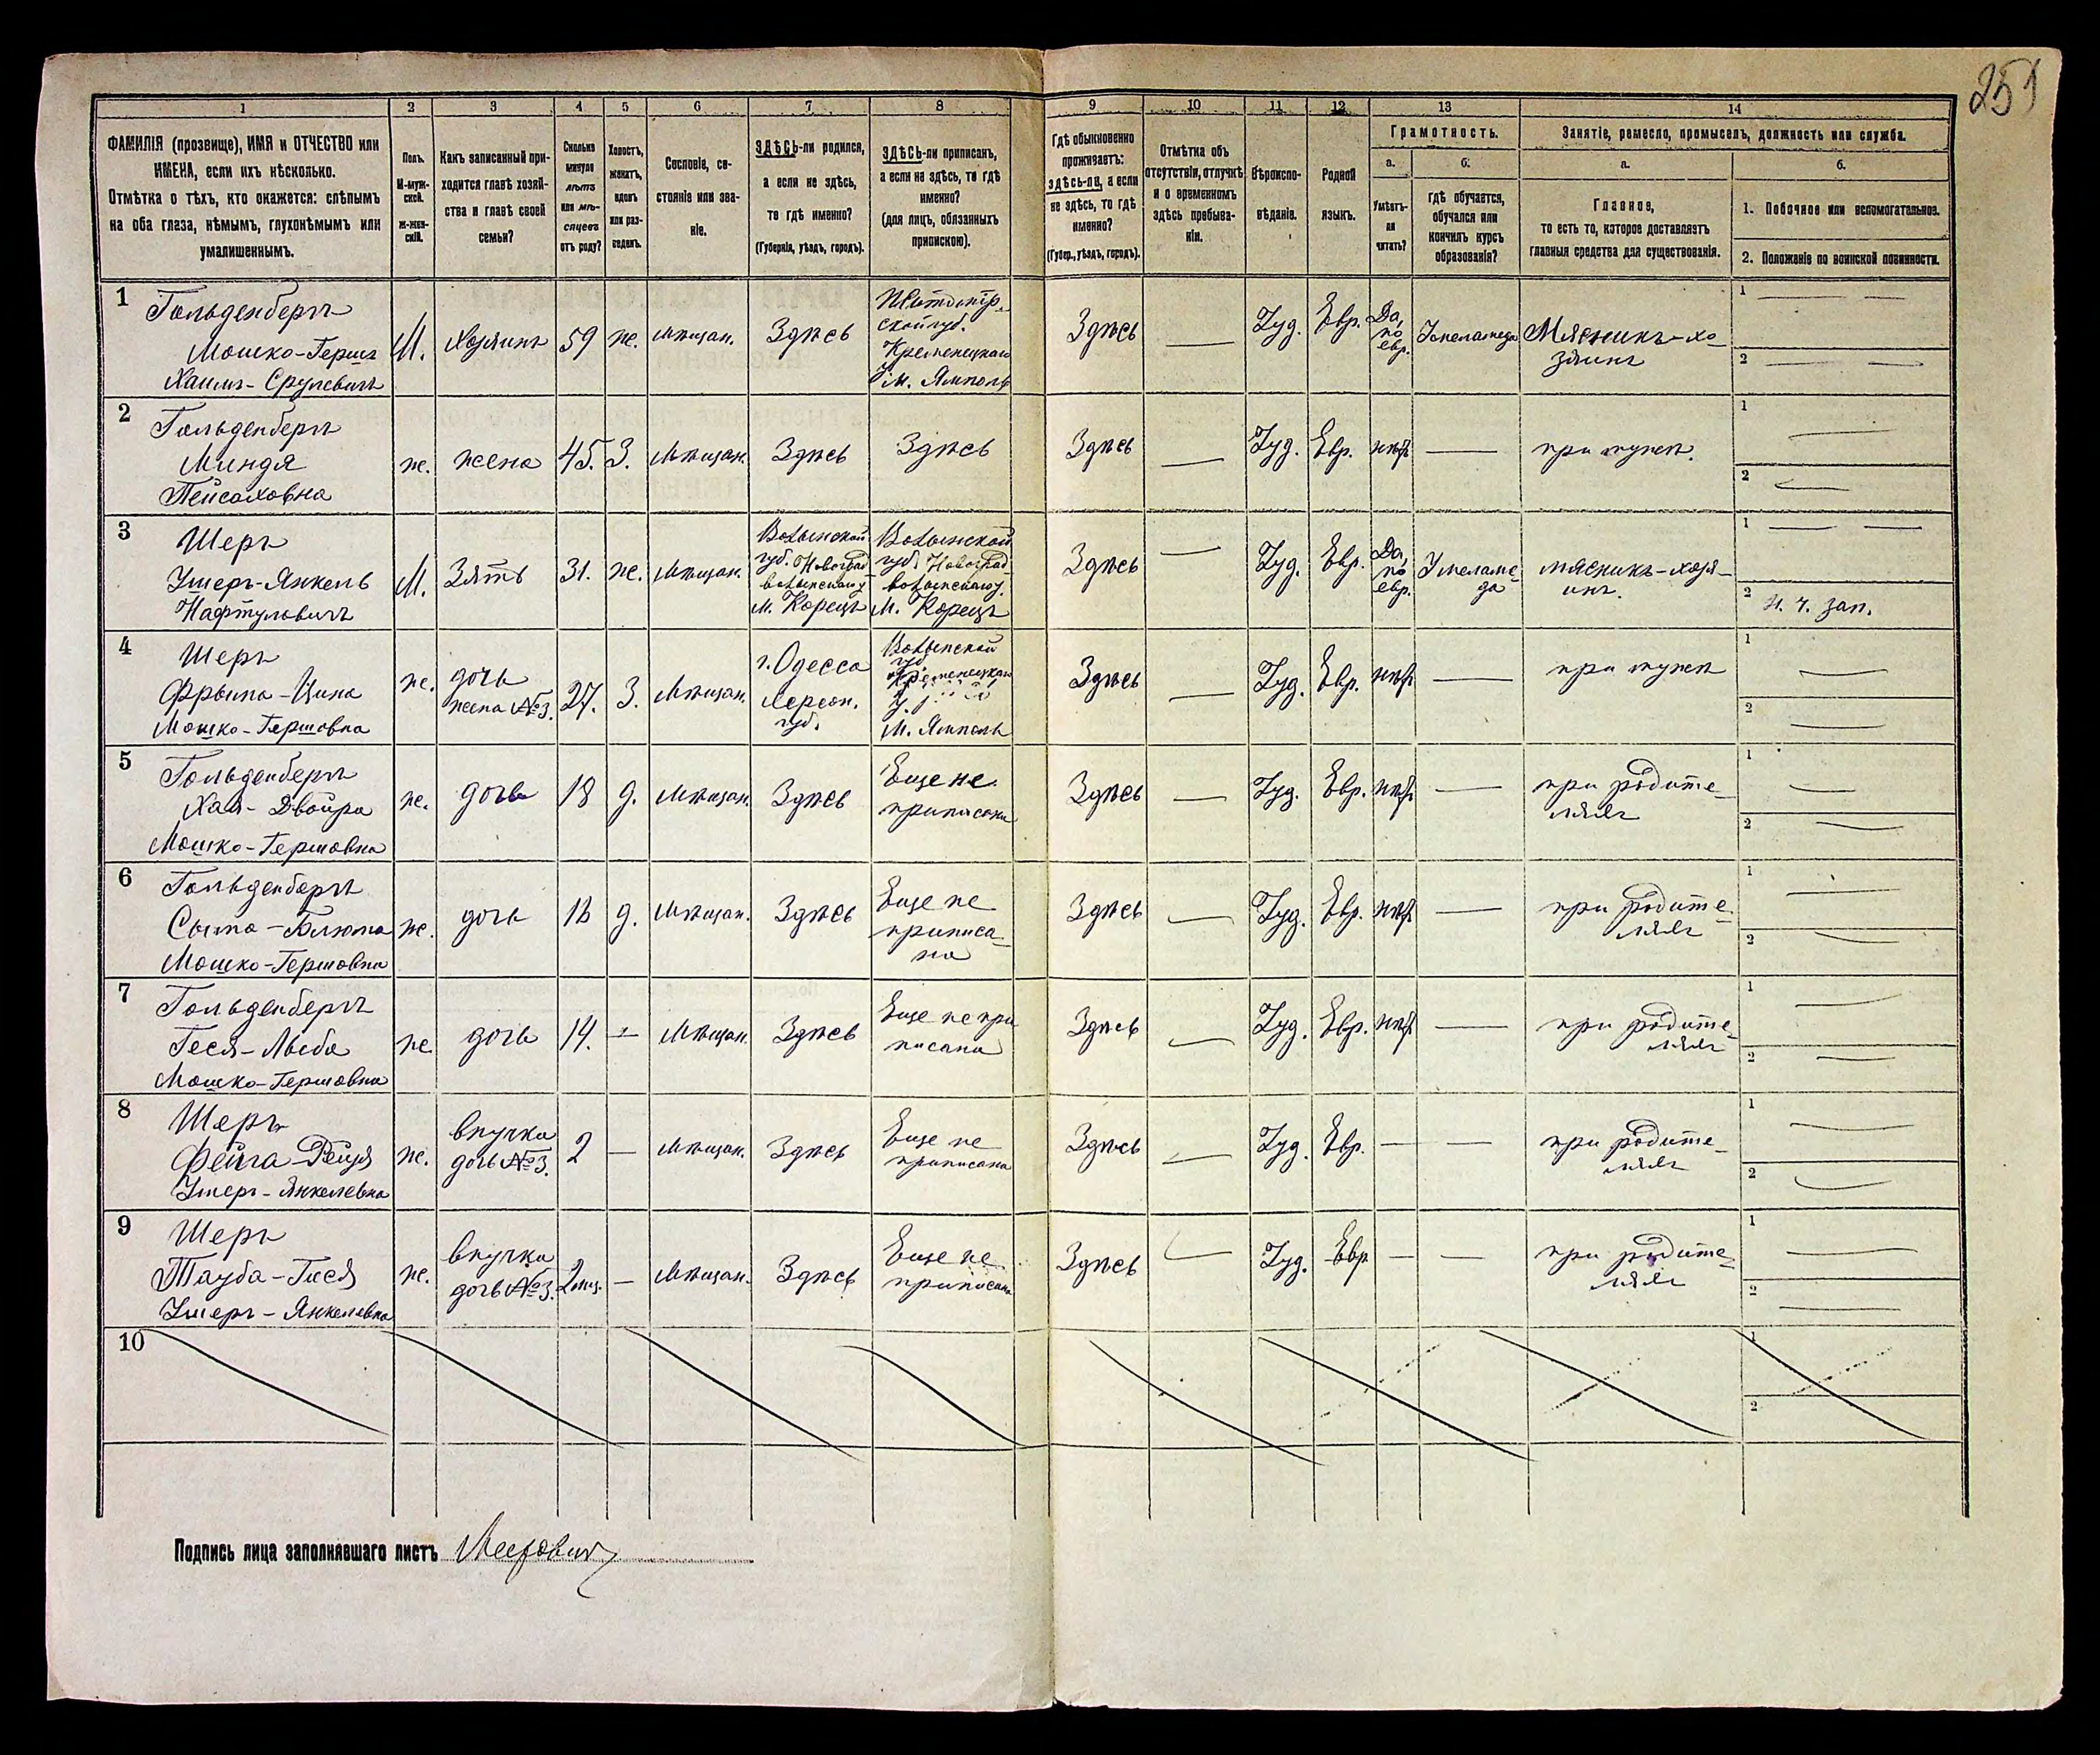 251
1 2 3 4 5 6 7 8 9 10 11 12 13 14
ФАМИЛІЯ (прозвище), ИМЯ и ОТЧЕСТВО или
ИМЕНА, если ихъ нѣсколько.
Отмѣтка о тѣхъ, кто окажется: слѣпымъ
на оба глаза, нѣмымъ, глухонѣмымъ или
умалишеннымъ.
Полъ.
М-муж-
ской.
Ж-жен-
скій.
Какъ записанный при-
ходится главѣ хозяй-
ства и главѣ своей
семьи?
Сколько
минуло
лѣтъ
или мѣ-
сяцевъ
отъ роду?
Холостъ,
женатъ,
вдовъ
или раз-
веденъ.
Сословіе, со-
стояніе или зва-
ніе.
ЗДѢСЬ-ли родился,
а если не здѣсь,
то гдѣ именно?
(Губернія, уѣздъ, городъ).
ЗДѢСЬ-ли приписанъ,
а если не здѣсь, то гдѣ
именно?
(для лицъ, обязанныхъ
припискою).
Гдѣ обыкновенно
проживаетъ:
здѣсь-ли, а если
не здѣсь, то гдѣ
именно?
(Губер., уѣздъ, городъ).
Отмѣтка объ
отсутствіи, отлучкѣ
и о временномъ
здѣсь пребыва-
ніи.
Вѣроиспо-
вѣданіе.
Родной
языкъ.
Грамотность.
а.
Умѣетъ-
ли
читать?
б.
Гдѣ обучается,
обучался или
кончилъ курсъ
образованія?
Занятіе, ремесло, промыселъ, должность или служба.
а.
Главное,
то есть то, которое доставляетъ
главныя средства для существованія.
б.
1. Побочное или вспомогательное.
2. Положеніе по воинской повинности.
1
Гольденбергъ
Мошко-Гершъ
Хаимъ-Срулевичъ
М.
Хозяинъ
59
ж.
Мѣщан.
Здѣсь
Житомір-
ской губ.
Кременецкаго
у. м. Ямполь
Здѣсь
Іуд.
Евр.
Да,
по
евр.
У меламеда
Мясникъ-хо-
зяинъ
1
2
2
Гольденбергъ
Миндя
Пейсаховна
ж.
жена
45.
З.
Мѣщан.
Здѣсь
Здѣсь
Здѣсь
Іуд.
Евр.
нѣт
при мужѣ.
1
2
3
Шеръ
Ушеръ-Янкель
Нафтуловичъ
М.
Зять
31.
ж.
Мѣщан.
Волынской
губ. Новоград-
волынскаго у.
м. Корецъ
Волынской
губ. Новоград-
волынскаго у.
м. Корецъ
Здѣсь
Іуд.
Евр.
Да,
по
евр.
У меламе-
да
мясникъ-хозя-
инъ.
1
2 н. ч. зап.
4
Шеръ
Фрыма-Цина
Мошко-Гершовна
ж.
дочь
жена №3.
27.
З.
Мѣщан.
г. Одесса
Херсон.
губ.
Волынской
губ.
Кременецкаго
у.
м. Ямполь
Здѣсь
Іуд.
Евр.
нѣт
при мужѣ
1
2
5
Гольденбергъ
Хая-Двойра
Мошко-Гершовна
ж.
дочь
18
д.
Мѣщан.
Здѣсь
Еще не
приписана
Здѣсь
Іуд.
Евр.
нѣт
при родите-
ляхъ
1
2
6
Гольденбергъ
Мошко-Гершовна
ж.
дочь
16
д.
Мѣщан.
Здѣсь
Еще не
приписа-
на
Здѣсь
Іуд.
Евр.
нѣт
при родите-
ляхъ
1
2
7
Гольденбергъ
Геся-Лыба
Мошко-Гершовна
ж.
дочь
14.
Мѣщан.
Здѣсь
Еще не при
писана
Здѣсь
Іуд.
Евр.
нѣт
при родите-
ляхъ
1
2
8
Шеръ
Фейга-Рейзя
Ушеръ-Янкелевна
ж.
внучка
дочь №3.
2
Мѣщан.
Здѣсь
Еще не
приписана
Здѣсь
Іуд.
Евр.
при родите-
ляхъ
1
2
9
Шеръ
Тауба-Гися
Ушеръ-Янкелевна
ж.
внучка
дочь №3.
2 мѣс.
Мѣщан.
Здѣсь
Еще не
приписана
Здѣсь
Іуд.
Евр
при родите-
ляхъ
1
2
10
1
2
Подпись лица заполнявшаго листъ